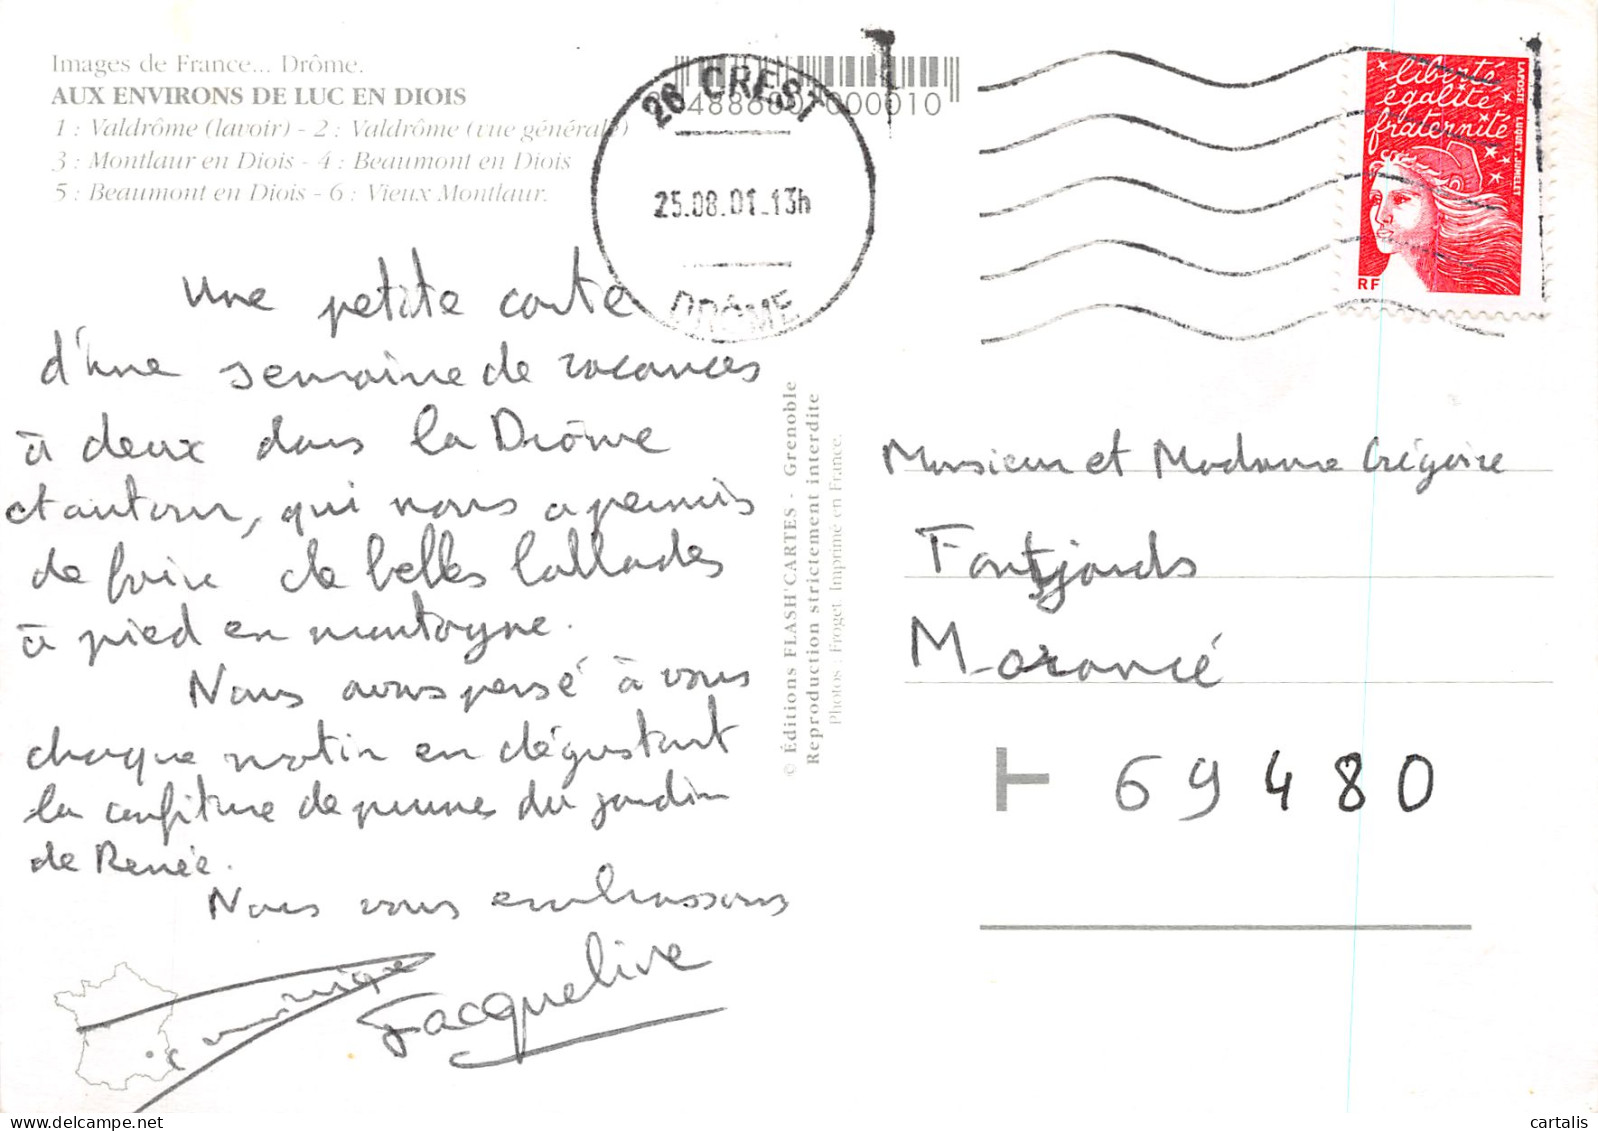 Images de France... Drôme.
AUX ENVIRONS DE LUC EN DIOIS
1 : Valdrôme (lavoir) - 2 : Valdrôme (vue générale)
3 : Montlaur en Diois - 4 : Beaumont en Diois
5 : Beaumont en Diois - 6 : Vieux Montlaur.
26 CREST
25.08.01-13h
DRÔME
000010
liberté
égalité
fraternité
LAPOSTE LUQUET-JUMELET
RF
Une petite carte
d'une semaine de vacances
à deux dans la Drôme
et autour, qui nous a permis
de faire de belles ballades
à pied en montagne.
Nous avons pensé à vous
chaque matin en dégustant
la confiture de prunes du jardin
de Renée.
Nous vous embrassons
Jacqueline
© Éditions FLASH'CARTES - Grenoble
Reproduction strictement interdite
Photos : Froget. Imprimé en France.
Monsieur et Madame Grégoire
Fontjards
Morancé
69480
cartalis